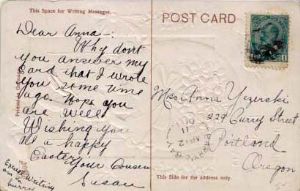 This Space for Writing Messages.
POST CARD
Dear Anna-
Why don't
you answer my
card that I wrote
you some time
ago. Hope you
are well
Wishing you
a happy
Easter
Your Cousin
Susan
Excuse Writing
am in a
hurry
Miss Anna
229 Curry Street
Portland
Oregon
This Side for the Address.